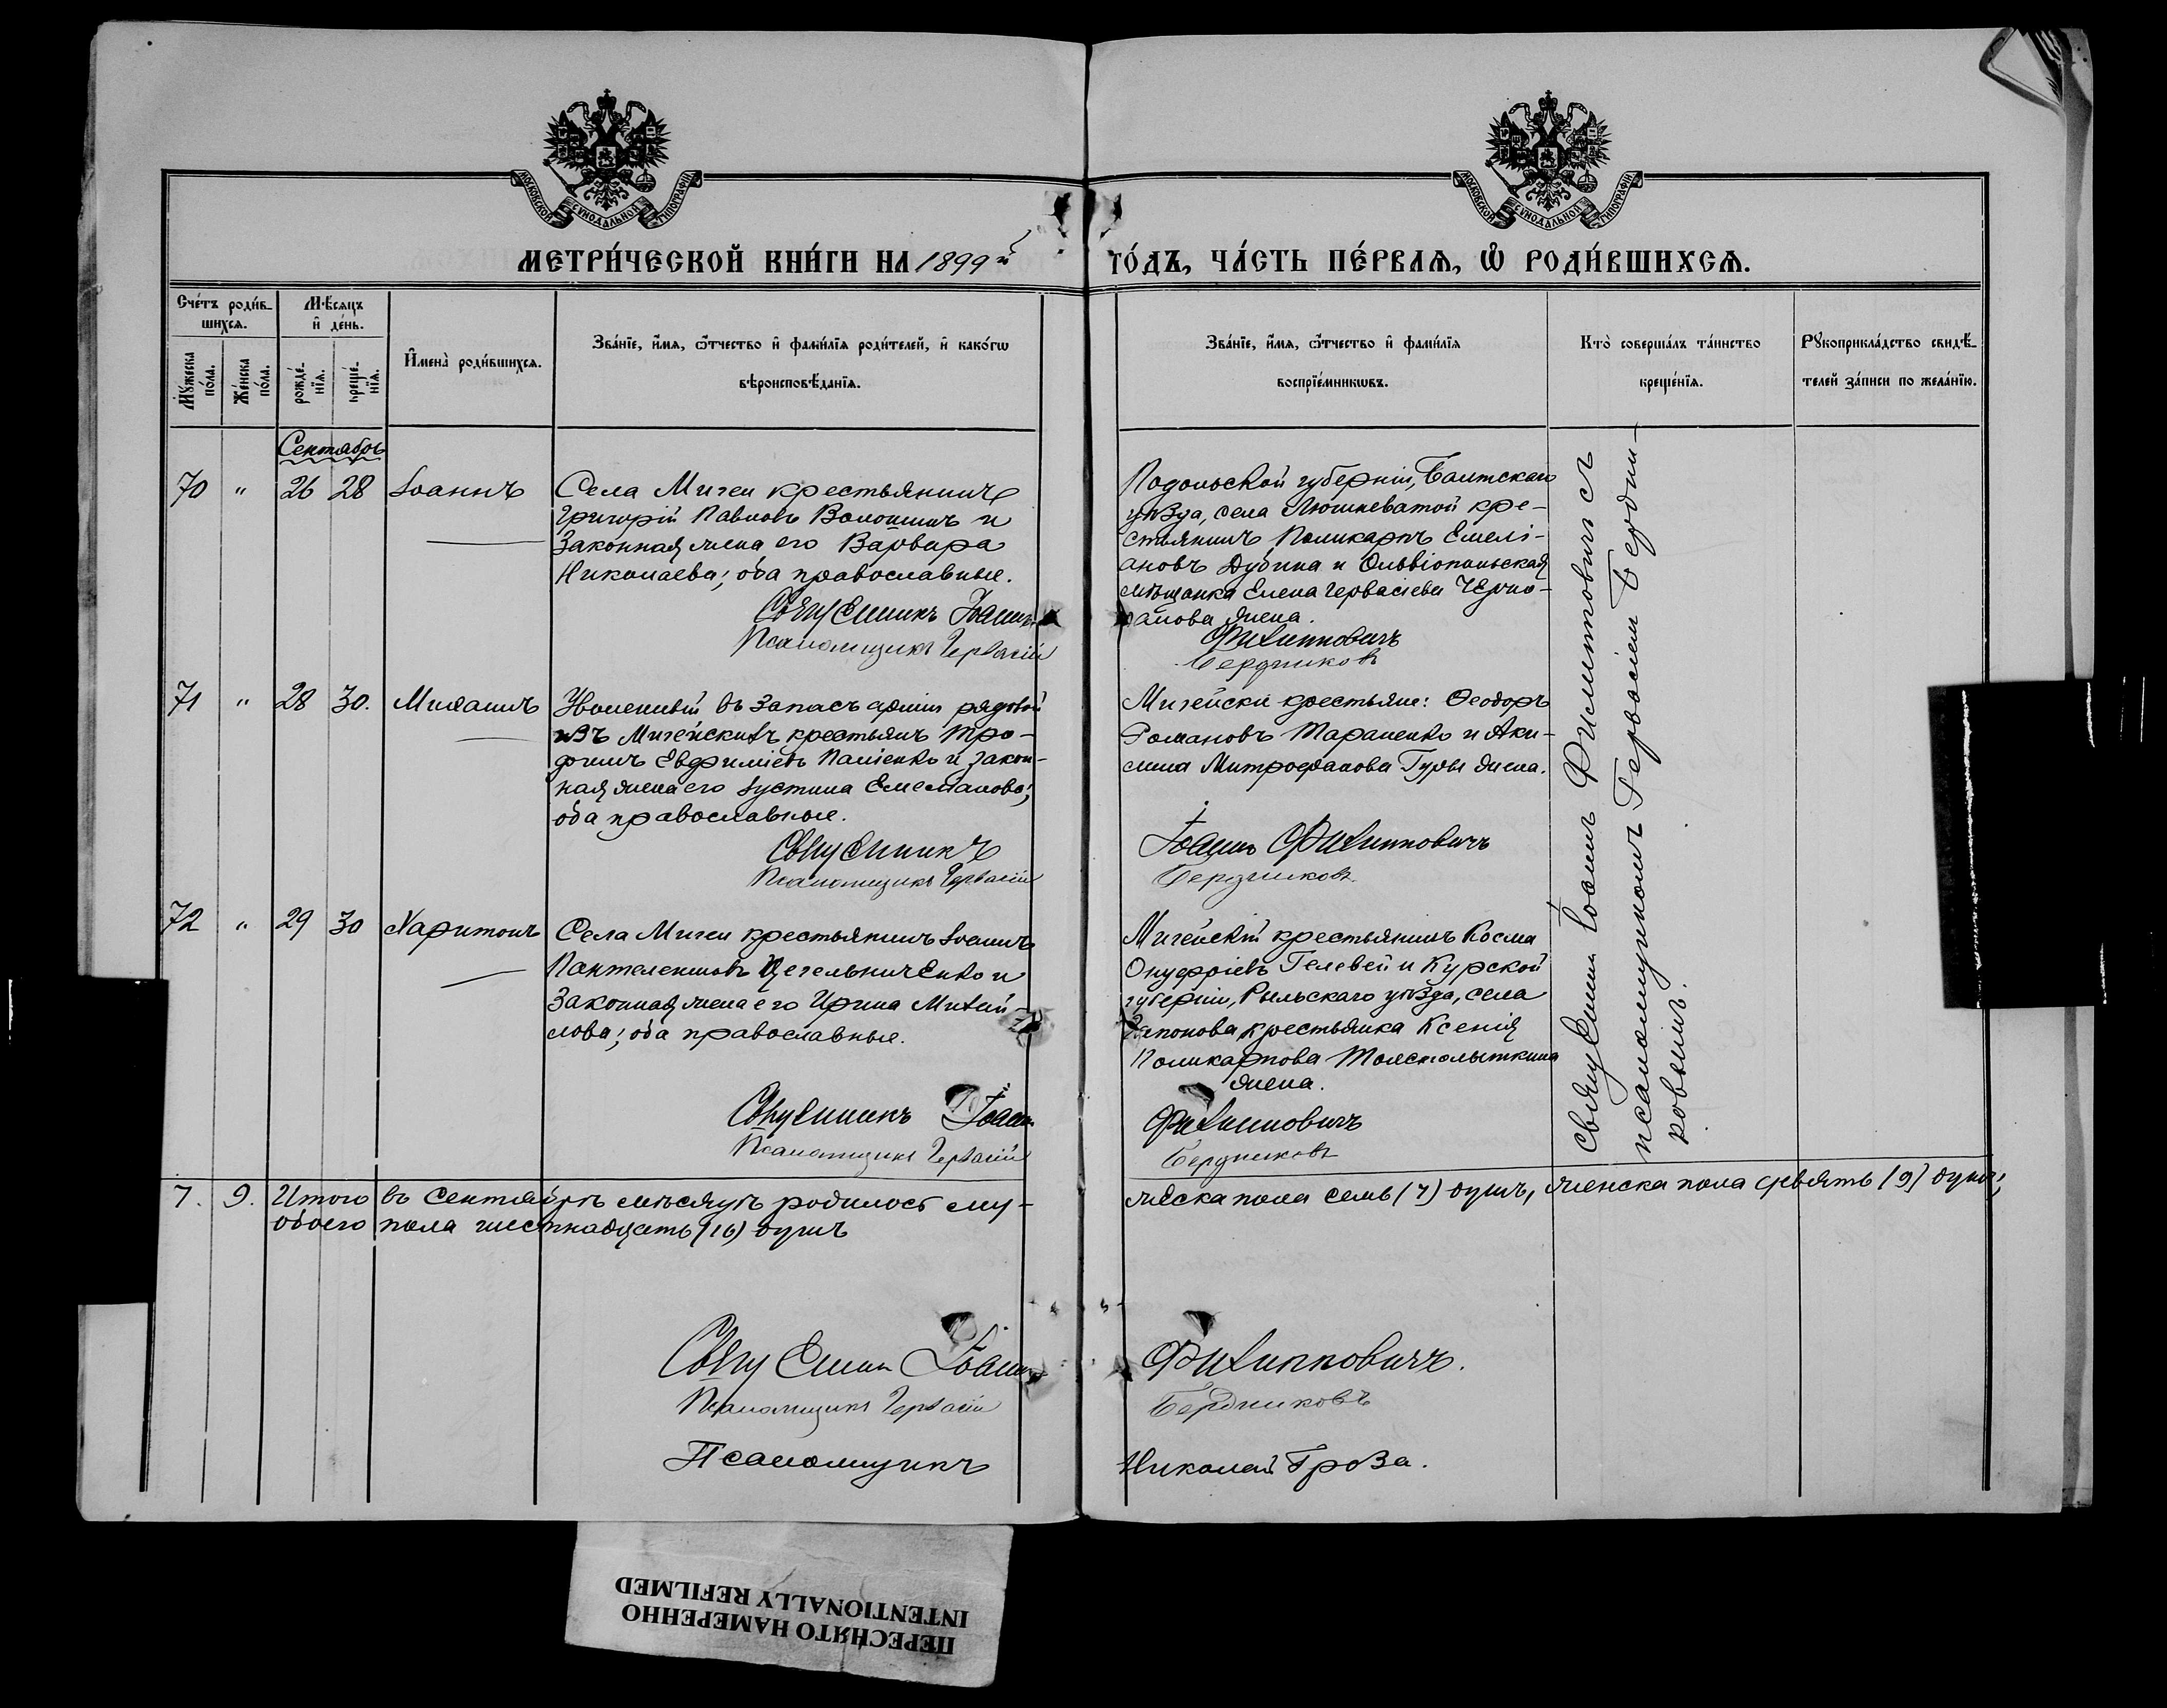 МОСКОВСКОЙ СѴНОДАЛЬНОЙ ТИПОГРАФІИ
МОСКОВСКОЙ СѴНОДАЛЬНОЙ ТИПОГРАФІИ
МЕТРИ́ЧЕСКОЙ КНИ́ГИ НА 1899й
ГО́ДЪ, ЧА́СТЬ ПЕ́РВАѦ, Ѡ РОДИ́ВШИХСѦ.
Сче́тъ роди́в-
шихсѧ.
Мѣ́сѧцъ
и҆ де́нь.
Мꙋ́жеска по́ла.
Же́нска по́ла.
рожде́-нїѧ.
креще́-нїѧ.
И҆мена̀ роди́вшихсѧ.
Зва́нїе, и҆́мѧ, ѻ҆́тчество и҆ фами́лїѧ роди́телей, и҆ како́гѡ
вѣроисповѣ́данїѧ.
Зва́нїе, и҆́мѧ, ѻ҆́тчество и҆ фами́лїѧ
воспрїе́мникѡвъ.
Кто̀ соверша́лъ та́инство
креще́нїѧ.
Рꙋкоприкла́дство свидѣ́-
телей за́писи по жела́нїю.
Сентябрь
70 " 26 28 Іоаннъ
Села Мигеи крестьянинъ
Григорій Павловъ Волошинъ и
законная жена его Варвара
Николаева; оба православные.
Священникъ Іоаннъ
Псаломщикъ Гервасій
Подольской губерніи, Балтскаго
уѣзда, села Люшневатой кре-
стьянинъ Поликарпъ Емелі-
ановъ Дубина и Ольвіопольская
мѣщанка Елена Гервасіева
жена.
Филипповичъ
Бердниковъ
71 " 28 30. Михаилъ
Уволенный въ запасъ арміи рядовой
изъ Мигейскихъ крестьянъ Тро-
фимъ Евфиміевъ Паліенко и закон-
ная жена его Іустина Емеліанова;
оба православные.
Священникъ
Псаломщикъ Гервасій
Мигейскіе крестьяне: Ѳеодоръ
Романовъ Тараненко и Аки-
лина Митрофанова Гуры жена.
Іоаннъ Филипповичъ
Бердниковъ
72 " 29 30 Харитонъ
Села Мигеи крестьянинъ Іоаннъ
Пантелеимоновъ Цегельниченко и
законная жена его Ирина Михай-
лова; оба православные.
Священникъ Іоаннъ
Псаломщикъ Гервасій
Мигейскій крестьянинъ Косма
Онуфріевъ Гелевей и Курской
губерніи, Рыльскаго уѣзда, села
крестьянка Ксенія
Поликарпова Толстолыткина
жена.
Филипповичъ
Бердниковъ
Священникъ Іоаннъ Филипповичъ съ
псаломщикомъ Гервасіемъ Бердни-
ковымъ.
7. 9. Итого въ сентябрѣ мѣсяцѣ родилось му-
жеска пола семь (7) душъ, женска пола девять (9) душъ,
обоего пола шестнадцать (16) душъ
Священ Іоаннъ
Филипповичъ.
Псаломщикъ Гервасій
Бердниковъ
Псаломщикъ
Николай Гроза.
ПЕРЕСНЯТО НАМЕРЕННО
INTENTIONALLY REFILMED